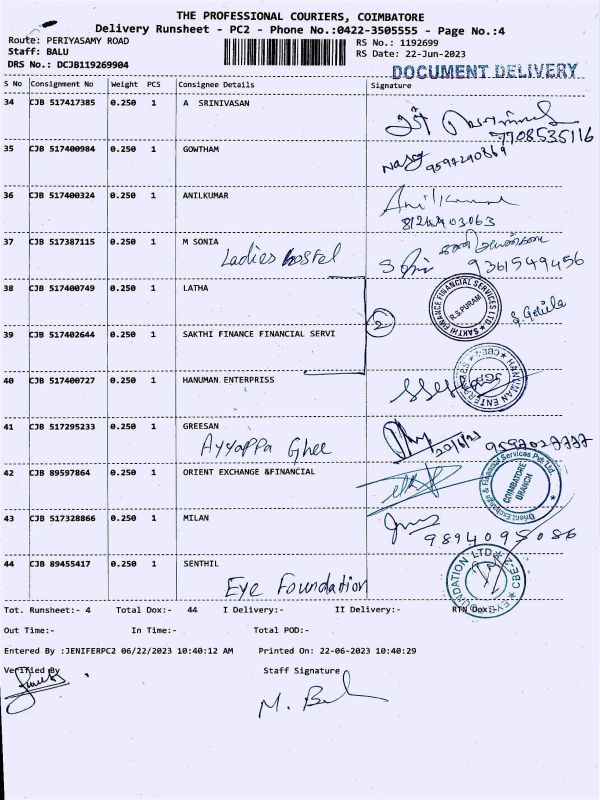 THE PROFESSIONAL COURIERS, COIMBATORE
Delivery Runsheet - PC2 - Phone No.:0422-3505555 - Page No.:4
Route: PERIYASAMY ROAD RS No.: 1192699
Staff: BALU RS Date: 22-Jun-2023
DRS No.: DCJB119269904
DOCUMENT DELIVERY
S No Consignment No Weight PCS Consignee Details Signature
34 CJB 517417385 0.250 1 A SRINIVASAN
7708535116
35 CJB 517400984 0.250 1 GOWTHAM
9597290869
36 CJB 517400324 0.250 1 ANILKUMAR Anilkumar
37 CJB 517387115 0.250 1 M SONIA
Ladies hostel 9361549456
38 CJB 517400749 0.250 1 LATHA
SAKTHI FINANCIAL SERVICES LTD
R.S.PURAM
2
39 CJB 517402644 0.250 1 SAKTHI FINANCE FINANCIAL SERVI
40 CJB 517400727 0.250 1 HANUMAN ENTERPRISS
HANUMAN ENTER
41 CJB 517295233 0.250 1 GREESAN
Ayyappa Ghee
42 CJB 89597864 0.250 1 ORIENT EXCHANGE &FINANCIAL
Orient Exchange & Financial Services Pvt Ltd
COIMBATORE
BRANCH
43 CJB 517328866 0.250 1 MILAN
9894095086
44 CJB 89455417 0.250 1 SENTHIL
Eye Foundation
EYE FOUNDATION LTD CBE-2
Tot. Runsheet:- 4 Total Dox:- 44 I Delivery:- II Delivery:- RTN Dox:-
Out Time:- In Time:- Total POD:-
Entered By :JENIFERPC2 06/22/2023 10:40:12 AM Printed On: 22-06-2023 10:40:29
Verified By Staff Signature